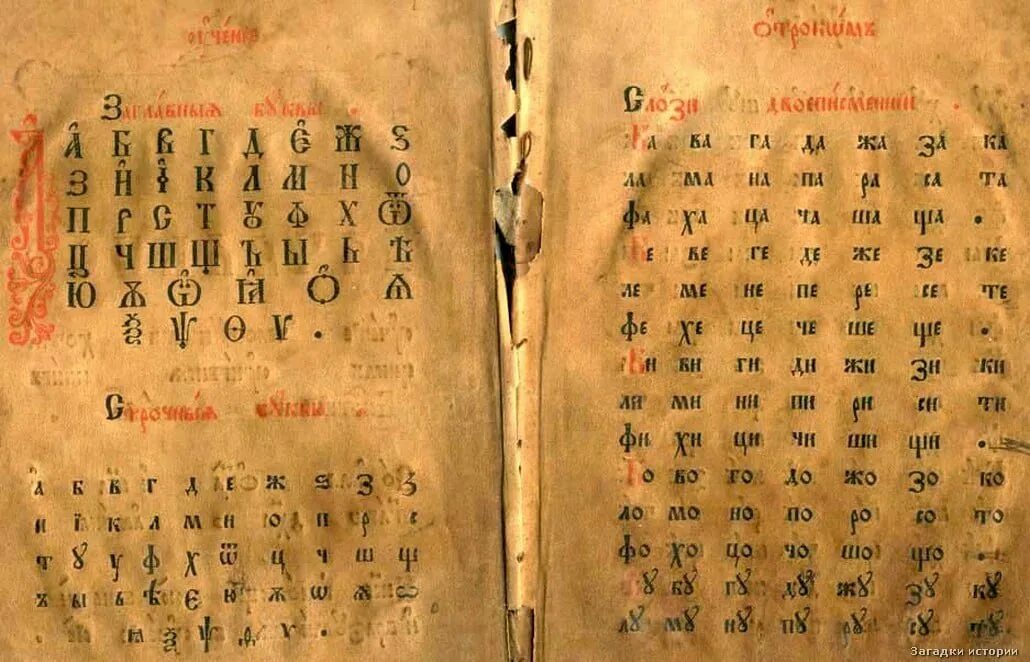 Заглавныѧ бꙋквы .
А Б В Г Д Є Ж Ѕ
З И І К Л М Н О
П Р С Т Ꙋ Ф Х Ѿ
Ц Ч Ш Щ Ъ Ы Ь Ѣ
Ю Ѫ Ѡ Ꙗ О Ѧ
Ѯ Ѱ Ѳ Ѵ .
Строчныѧ бꙋквы
а б в г д е ж ѕ з
и ї к л м н о п р с
т ꙋ у ф х ѿ ц ч ш щ
ъ ы ь ѣ є ю ѫ ѡ ѧ
ꙗ ѯ ѱ ѵ .
Ѻтрокѡмъ
Слози двоеписменнии .
Ба ва га да жа за ка
ла ма на па ра са та
фа ха ца ча ша ща .
Бе ве ге де же зе ке
ле ме не пе ре се те
фе хе це че ше ще .
Би ви ги ди жи зи ки
ли ми ни пи ри си ти
фи хи ци чи ши щи .
во го до жо зо ко
ло мо но по ро со то
фо хо цо чо шо що .
бꙋ гꙋ дꙋ жꙋ зꙋ кꙋ
лꙋ мꙋ нꙋ пꙋ рꙋ сꙋ тꙋ
Загадки истории